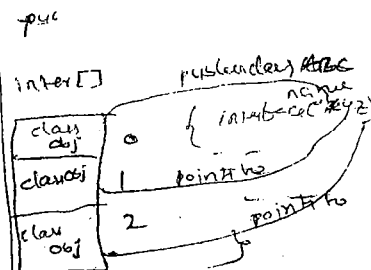 inter[]
public class ABC
name
{ interface "XYZ"
class obj 0
class obj 1 point to
class obj 2 point to